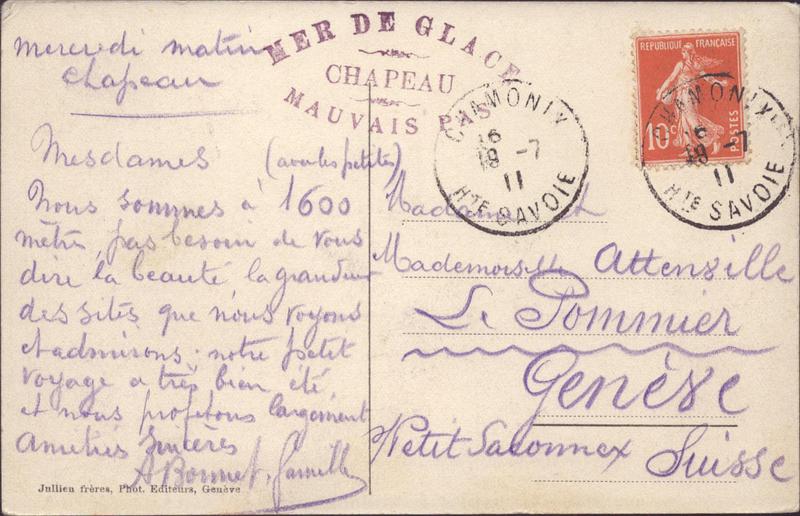 mercredi matin
Chapeau
MER DE GLACE
CHAPEAU
MAUVAIS PAS
Mesdames (avec les petites)
Nous sommes à 1600
mètres pas besoin de vous
dire la beauté la grandeur
des sites que nous voyons
et admirons. notre petit
voyage a très bien été
et nous profitons largement
Amitiés sincères
A Bonnet, famille
Jullien frères, Phot. Editeurs, Genève
REPUBLIQUE FRANÇAISE
10c
POSTES
CHAMONIX
16
19 -7
11
HTE SAVOIE
CHAMONIX
16
19 -7
11
HTE SAVOIE
Madame et
Mademoiselle Attenville
Le Pommier
Genève
Petit Saconnex
Suisse